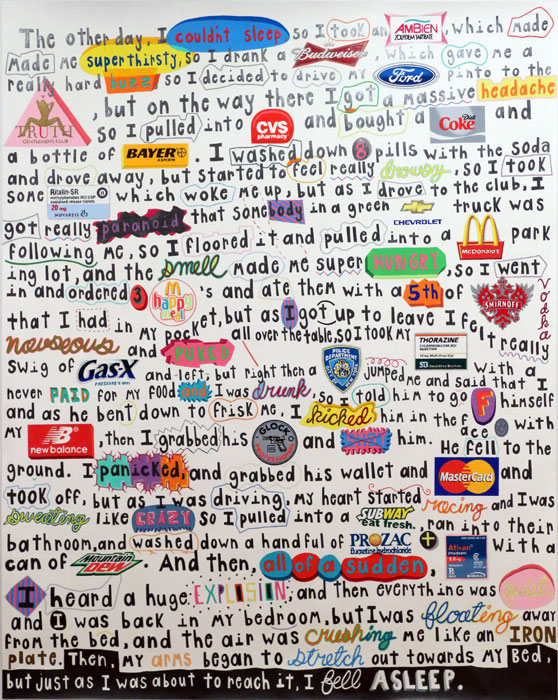 The other day, I couldn't sleep so I took an AMBIEN ZOLPIDEM TARTRATE, which made
made me super thirsty, so I drank a Budweiser, which gave me a
really hard buzz, so I decided to drive my Ford pinto to the
TRUTH GENTLEMEN'S CLUB, but on the way there I got a massive headache
so I pulled into CVS pharmacy and bought a Diet Coke and
a bottle of BAYER ASPIRIN. I washed down 8 pills with the soda
and drove away, but started to feel really drowsy, so I took
some Ritalin-SR 20 mg NOVARTIS which woke me up, but as I drove to the club, I
got really paranoid that somebody in green CHEVROLET truck was
following me, so I floored it and pulled into a McDonald's park
ing lot, and the smell made me super HUNGRY, so I went
in and ordered 3 happy meal 's and ate them with a 5th of SMIRNOFF vodka
that I had in my pocket, but as I got up to leave I felt really
nauseous and PUKED all over the table, so I took my THORAZINE
swig of Gas-X and left, but right then a POLICE DEPARTMENT jumped me and said that I with
never PAID for my food and I was drunk, so I told him to go F himself
and as he bent down to frisk me, I kicked him in the face with
my new balance, then I grabbed his GLOCK and him. He fell to the
ground. I panicked, and grabbed his wallet and MasterCard and
took off, but as I was driving, my heart started racing and I was
sweating like CRAZY so I pulled into a SUBWAY eat fresh., ran into their
bathroom, and washed down a handful of PROZAC fluoxetine hydrochloride + Ativan with a
can of Mountain DEW. And then, all of a sudden,
I heard a huge EXPLOSION, and then everything was
and I was back in my bedroom, but I was floating away
from the bed, and the air was crushing me like an IRON
plate. Then, my arms began to stretch out towards my bed,
but just as I was about to reach it, I fell ASLEEP.